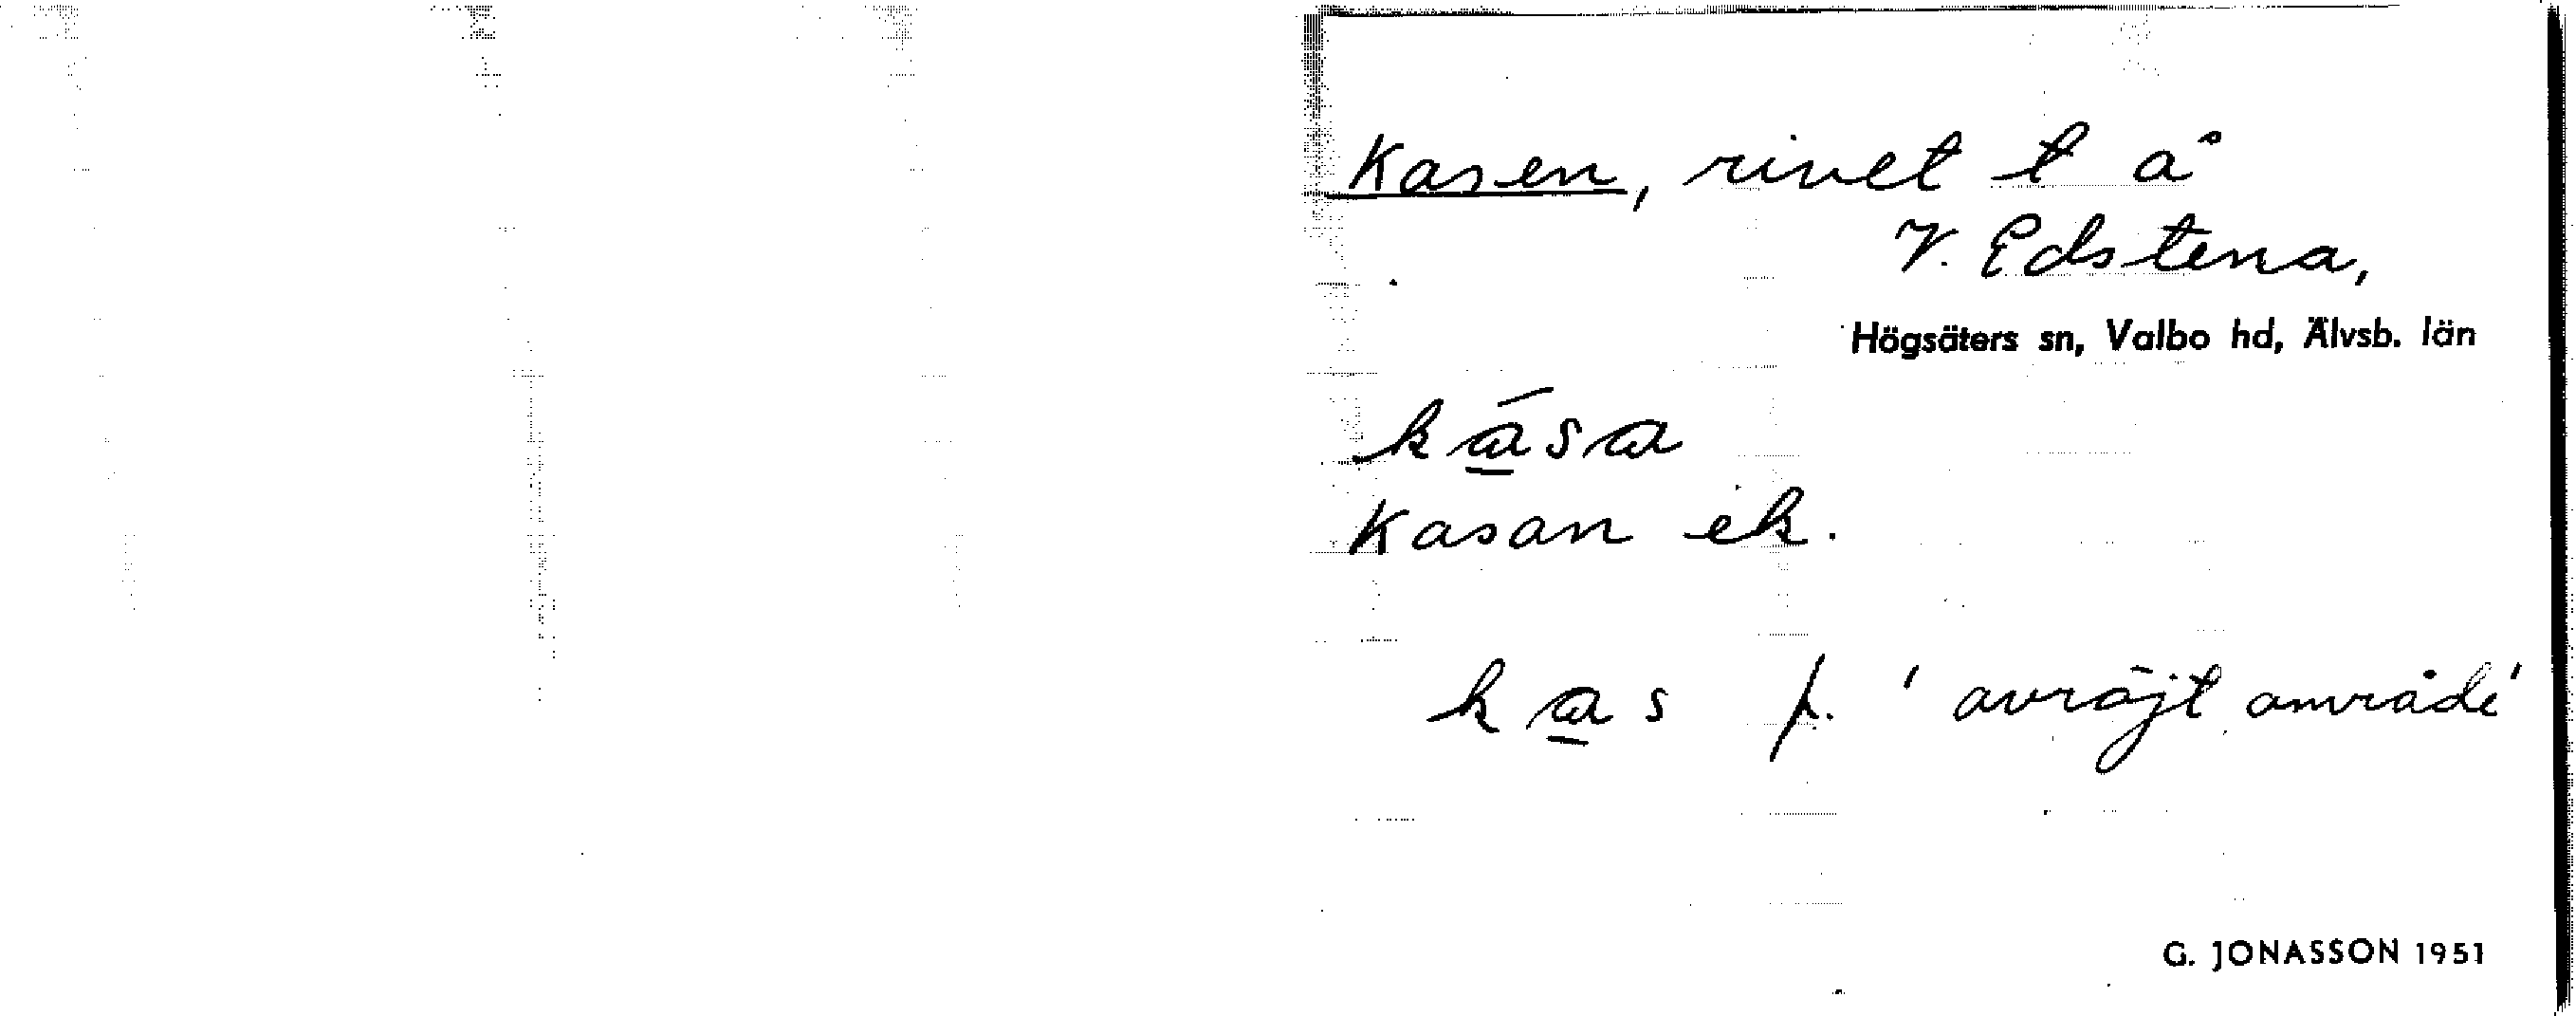 Kasen, rivet t å
V. Edstena,
Högsäters sn, Valbo hd, Älvsb. län
kása
Kasan ek.
kas f. 'avröjt område'
G. JONASSON 1951